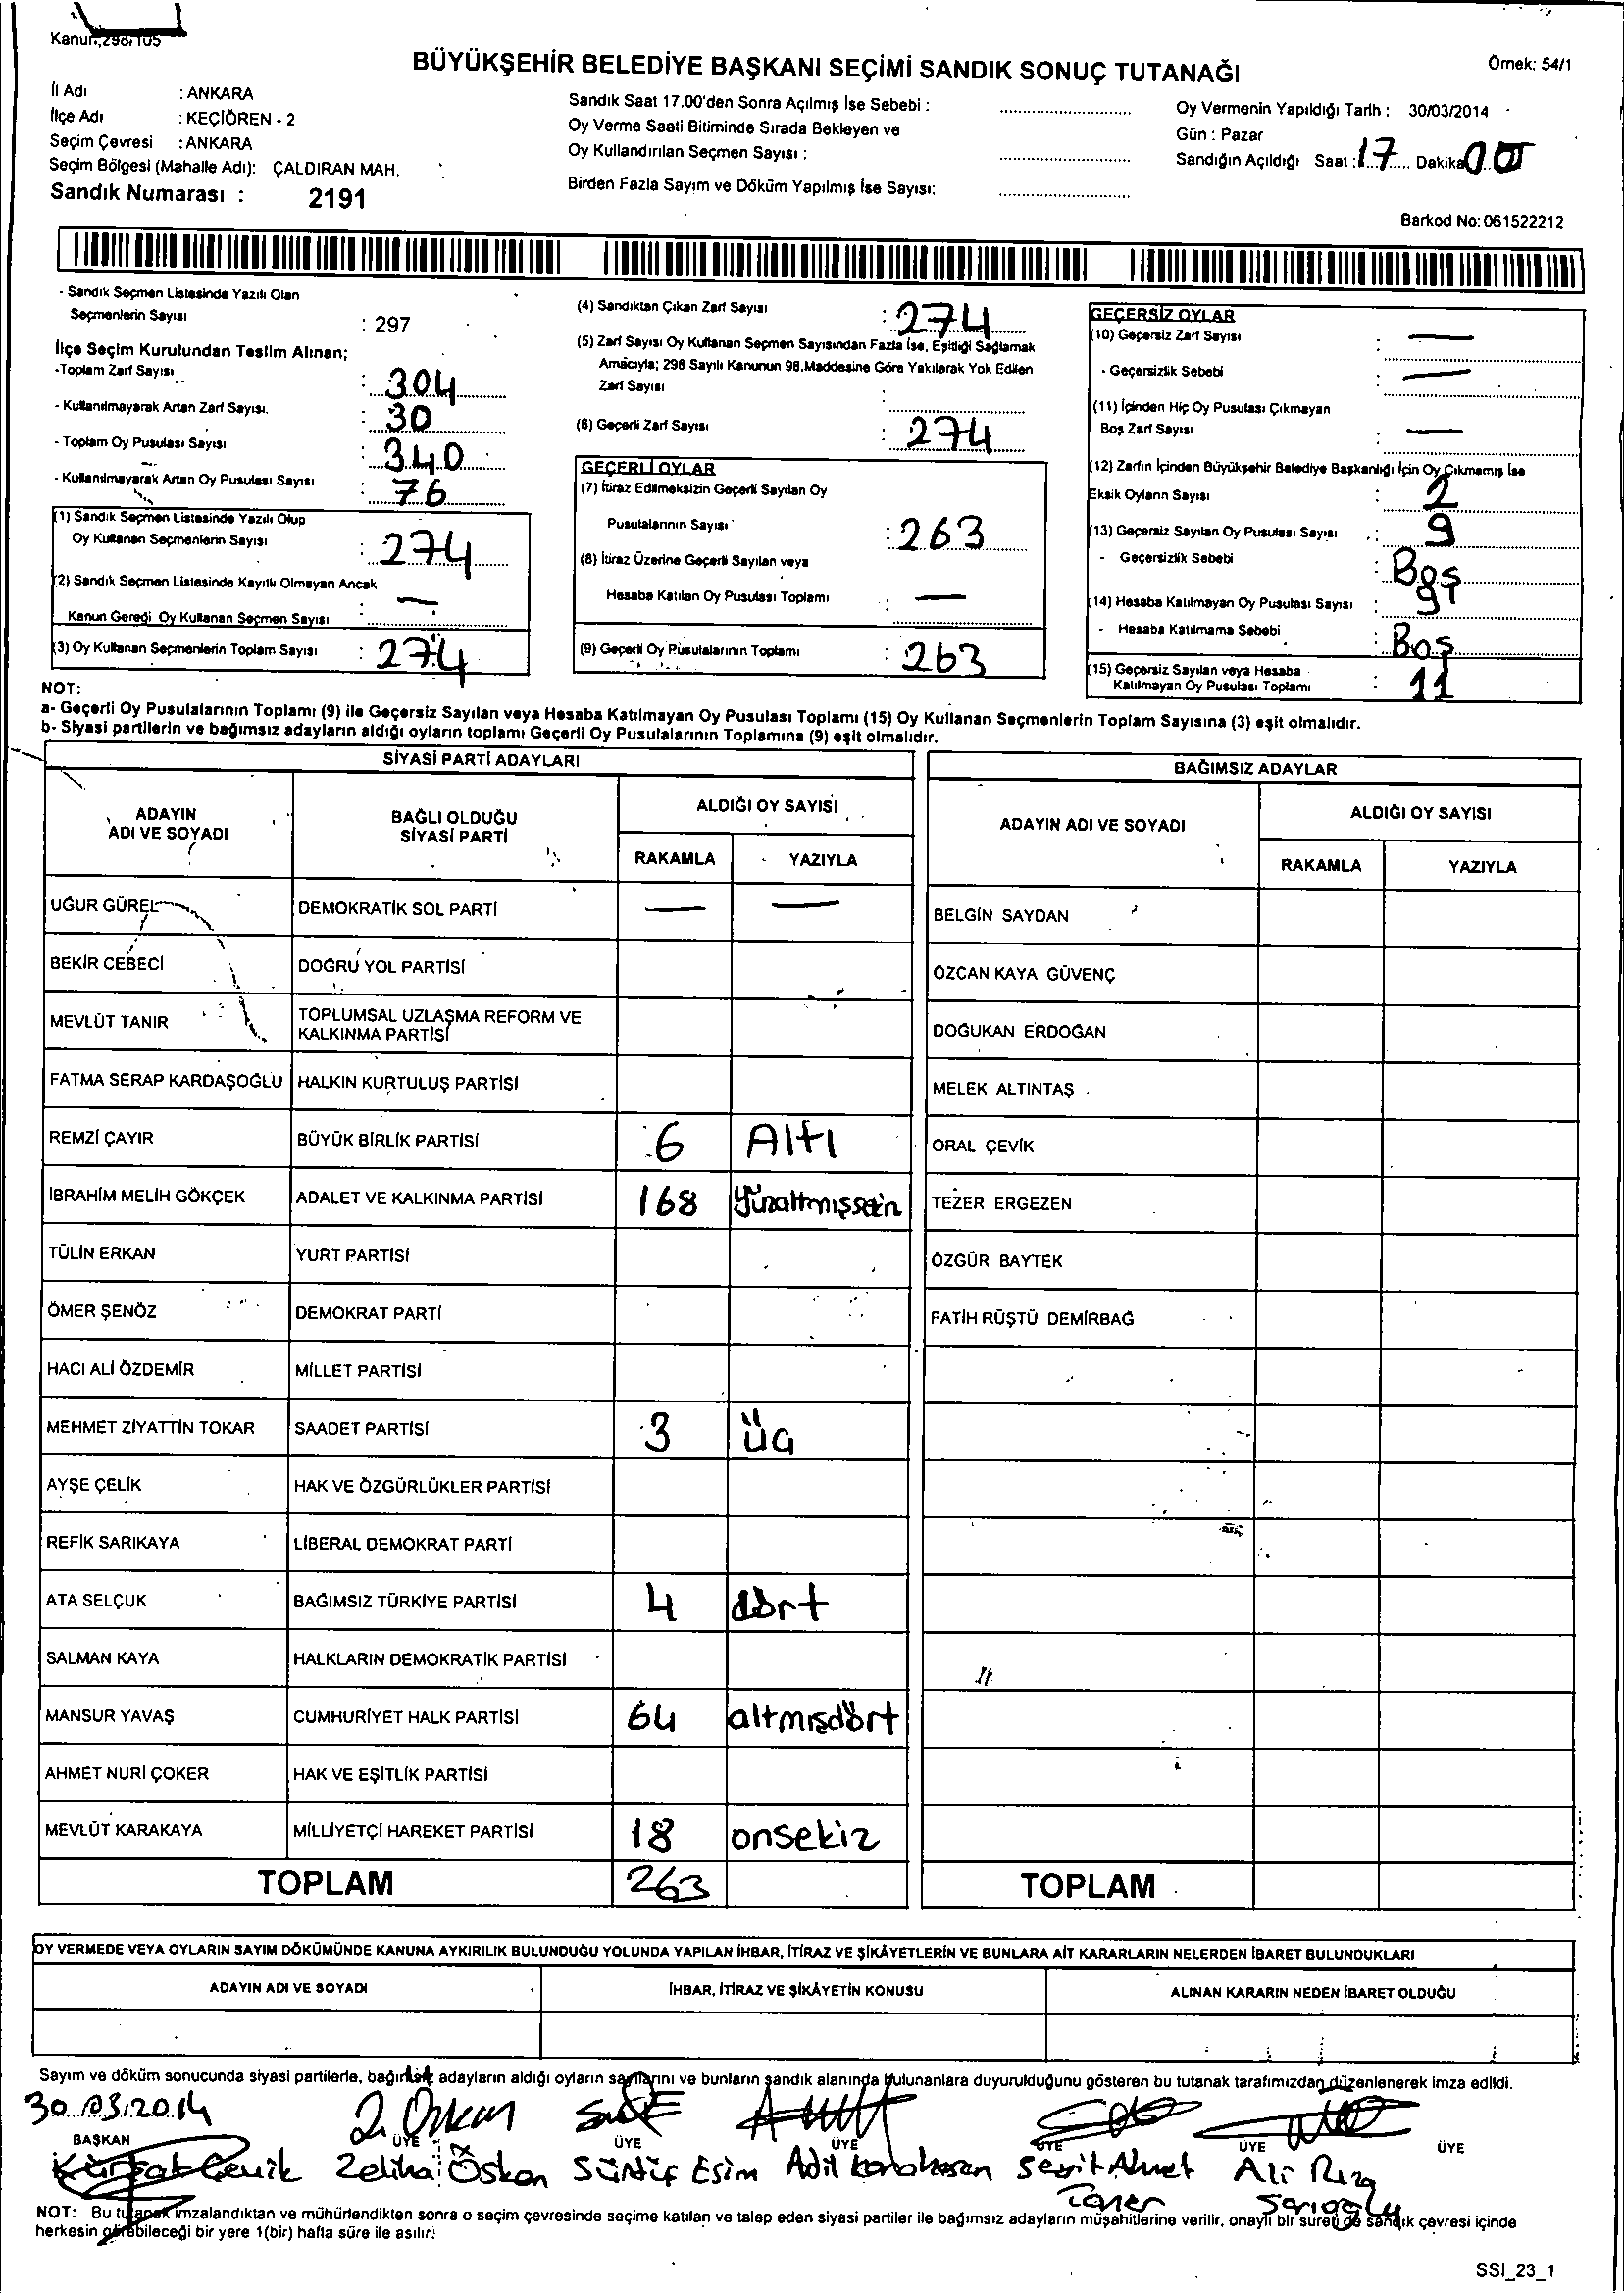 Kanun:298/105
BÜYÜKŞEHİR BELEDİYE BAŞKANI SEÇİMİ SANDIK SONUÇ TUTANAĞI
Örnek: 54/1
İl Adı : ANKARA
İlçe Adı : KEÇİÖREN - 2
Seçim Çevresi : ANKARA
Seçim Bölgesi (Mahalle Adı): ÇALDIRAN MAH.
Sandık Numarası : 2191
Sandık Saat 17.00'den Sonra Açılmış İse Sebebi :
Oy Verme Saati Bitiminde Sırada Bekleyen ve
Oy Kullandırılan Seçmen Sayısı :
Birden Fazla Sayım ve Döküm Yapılmış İse Sayısı:
Oy Vermenin Yapıldığı Tarih : 30/03/2014
Gün : Pazar
Sandığın Açıldığı Saat : 17 Dakika 00
Barkod No: 061522212
- Sandık Seçmen Listesinde Yazılı Olan
Seçmenlerin Sayısı : 297
İlçe Seçim Kurulundan Teslim Alınan;
-Toplam Zarf Sayısı : 304
- Kullanılmayarak Artan Zarf Sayısı. : 30
- Toplam Oy Pusulası Sayısı : 340
- Kullanılmayarak Artan Oy Pusulası Sayısı : 76
(1) Sandık Seçmen Listesinde Yazılı Olup
Oy Kullanan Seçmenlerin Sayısı : 274
(2) Sandık Seçmen Listesinde Kayıtlı Olmayan Ancak
Kanun Gereği Oy Kullanan Seçmen Sayısı : —
(3) Oy Kullanan Seçmenlerin Toplam Sayısı : 274
(4) Sandıktan Çıkan Zarf Sayısı : 274
(5) Zarf Sayısı Oy Kullanan Seçmen Sayısından Fazla İse, Eşitliği Sağlamak
Amacıyla; 298 Sayılı Kanunun 98.Maddesine Göre Yakılarak Yok Edilen
Zarf Sayısı :
(6) Geçerli Zarf Sayısı : 274
GEÇERLİ OYLAR
(7) İtiraz Edilmeksizin Geçerli Sayılan Oy
Pusulalarının Sayısı : 263
(8) İtiraz Üzerine Geçerli Sayılan veya
Hesaba Katılan Oy Pusulası Toplamı : —
(9) Geçerli Oy Pusulalarının Toplamı : 263
GEÇERSİZ OYLAR
(10) Geçersiz Zarf Sayısı : —
- Geçersizlik Sebebi : —
(11) İçinden Hiç Oy Pusulası Çıkmayan
Boş Zarf Sayısı : —
(12) Zarfın İçinden Büyükşehir Belediye Başkanlığı İçin Oy Çıkmamış İse
Eksik Oyların Sayısı : 2
(13) Geçersiz Sayılan Oy Pusulası Sayısı : 9
- Geçersizlik Sebebi : Boş
(14) Hesaba Katılmayan Oy Pusulası Sayısı : 9
- Hesaba Katılmama Sebebi : Boş
(15) Geçersiz Sayılan veya Hesaba
Katılmayan Oy Pusulası Toplamı : 11
NOT:
a- Geçerli Oy Pusulalarının Toplamı (9) ile Geçersiz Sayılan veya Hesaba Katılmayan Oy Pusulası Toplamı (15) Oy Kullanan Seçmenlerin Toplam Sayısına (3) eşit olmalıdır.
b- Siyasi partilerin ve bağımsız adayların aldığı oyların toplamı Geçerli Oy Pusulalarının Toplamına (9) eşit olmalıdır.
SİYASİ PARTİ ADAYLARI
ADAYIN ADI VE SOYADI
BAĞLI OLDUĞU SİYASİ PARTİ
ALDIĞI OY SAYISI
RAKAMLA YAZIYLA
UĞUR GÜREL DEMOKRATİK SOL PARTİ — —
BEKİR CEBECİ DOĞRU YOL PARTİSİ
MEVLÜT TANIR TOPLUMSAL UZLAŞMA REFORM VE
KALKINMA PARTİSİ
FATMA SERAP KARDAŞOĞLU HALKIN KURTULUŞ PARTİSİ
REMZİ ÇAYIR BÜYÜK BİRLİK PARTİSİ 6 Altı
İBRAHİM MELİH GÖKÇEK ADALET VE KALKINMA PARTİSİ 168
TÜLİN ERKAN YURT PARTİSİ
ÖMER ŞENÖZ DEMOKRAT PARTİ
HACI ALİ ÖZDEMİR MİLLET PARTİSİ
MEHMET ZİYATTİN TOKAR SAADET PARTİSİ 3 üç
AYŞE ÇELİK HAK VE ÖZGÜRLÜKLER PARTİSİ
REFİK SARIKAYA LİBERAL DEMOKRAT PARTİ
ATA SELÇUK BAĞIMSIZ TÜRKİYE PARTİSİ 4 dört
SALMAN KAYA HALKLARIN DEMOKRATİK PARTİSİ
MANSUR YAVAŞ CUMHURİYET HALK PARTİSİ 64 altmışdört
AHMET NURİ ÇOKER HAK VE EŞİTLİK PARTİSİ
MEVLÜT KARAKAYA MİLLİYETÇİ HAREKET PARTİSİ 18 onsekiz
TOPLAM 263
BAĞIMSIZ ADAYLAR
ADAYIN ADI VE SOYADI
ALDIĞI OY SAYISI
RAKAMLA YAZIYLA
BELGİN SAYDAN
ÖZCAN KAYA GÜVENÇ
DOĞUKAN ERDOĞAN
MELEK ALTINTAŞ
ORAL ÇEVİK
TEZER ERGEZEN
ÖZGÜR BAYTEK
FATİH RÜŞTÜ DEMİRBAĞ
TOPLAM
OY VERMEDE VEYA OYLARIN SAYIM DÖKÜMÜNDE KANUNA AYKIRILIK BULUNDUĞU YOLUNDA YAPILAN İHBAR, İTİRAZ VE ŞİKÂYETLERİN VE BUNLARA AİT KARARLARIN NELERDEN İBARET BULUNDUKLARI
ADAYIN ADI VE SOYADI İHBAR, İTİRAZ VE ŞİKÂYETİN KONUSU ALINAN KARARIN NEDEN İBARET OLDUĞU
Sayım ve döküm sonucunda siyasi partilerle, bağımsız adayların aldığı oyların sayılarını ve bunların sandık alanında bulunanlara duyurulduğunu gösteren bu tutanak tarafımızdan düzenlenerek imza edildi.
30.03.2014
BAŞKAN ÜYE ÜYE ÜYE ÜYE ÜYE ÜYE
Zeliha Özkan Esim Adil Ahmet Ali Rıza
Taner Sarıoğlu
NOT: Bu tutanak imzalandıktan ve mühürlendikten sonra o seçim çevresinde seçime katılan ve talep eden siyasi partiler ile bağımsız adayların müşahitlerine verilir, onaylı bir sureti de sandık çevresi içinde
herkesin görebileceği bir yere 1(bir) hafta süre ile asılır.
SSI_23_1